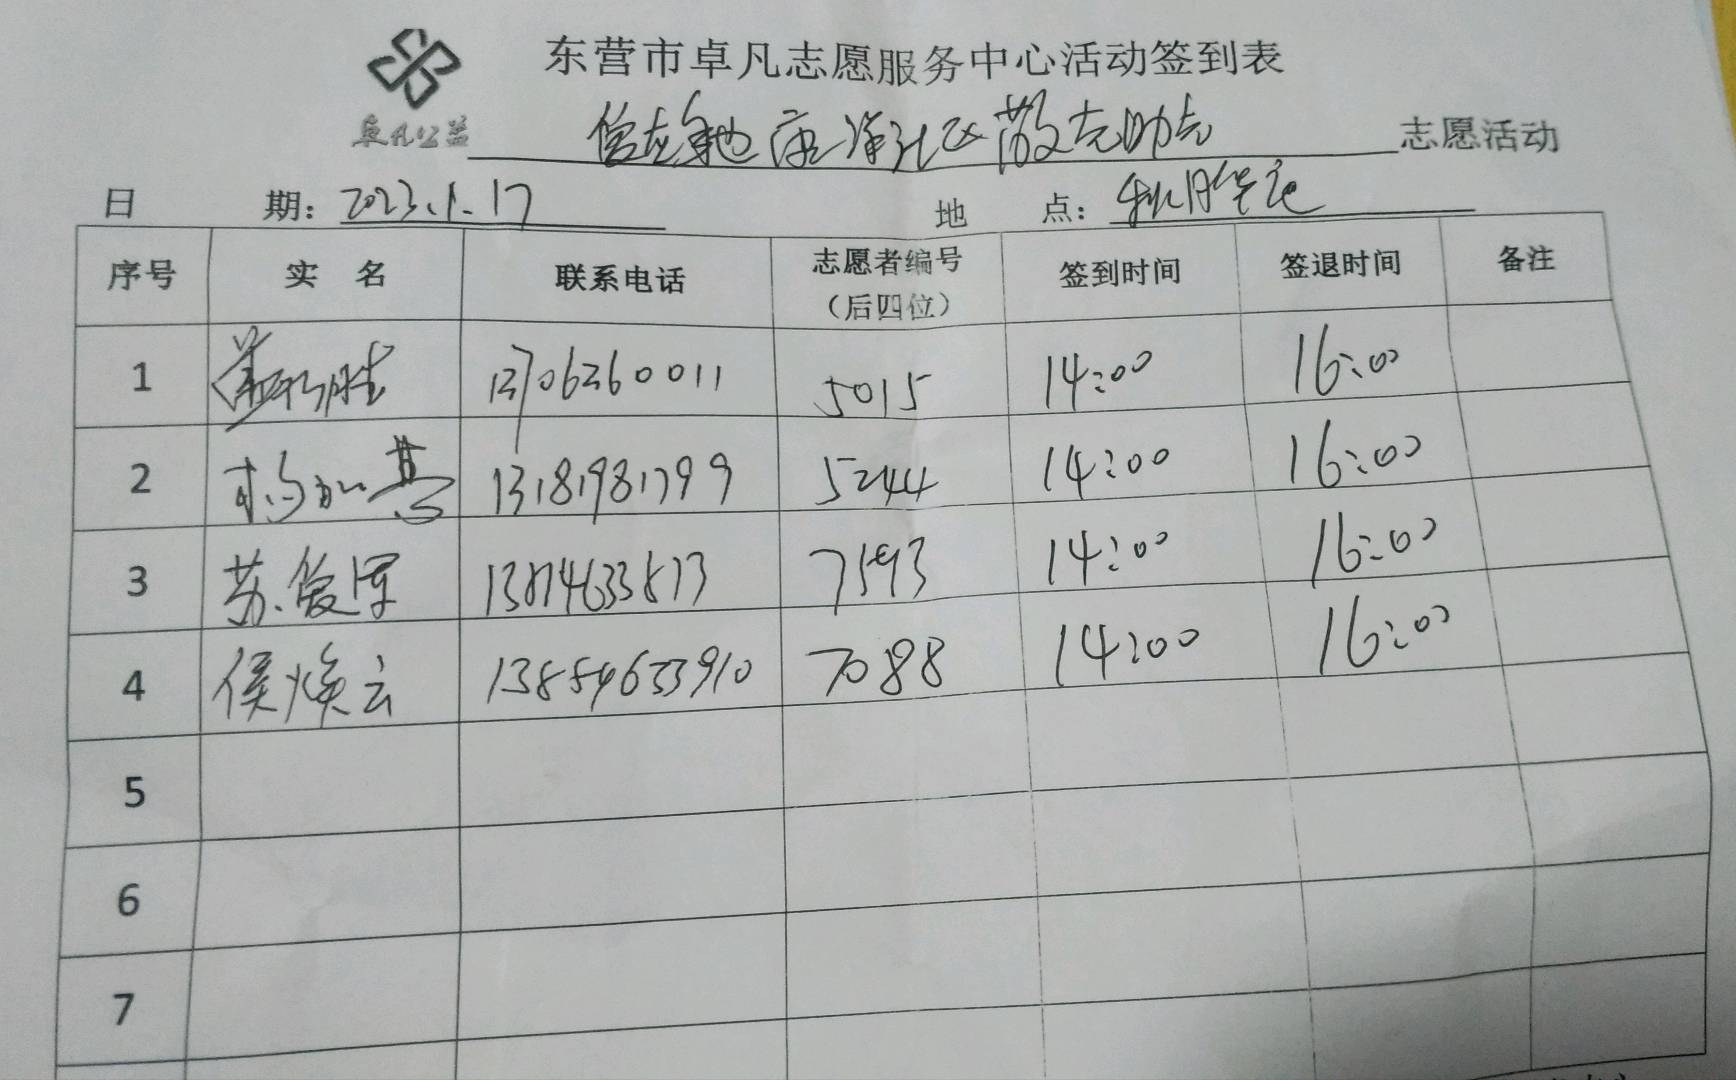 东营市卓凡志愿服务中心活动签到表
卓凡公益
社区敬老助老 志愿活动
日 期：2023.1.17 地 点：
序号 实 名 联系电话 志愿者编号（后四位） 签到时间 签退时间 备注
1 13706360011 5015 14:00 16:00
2 5244 14:00 16:00
3 苏俊军 7593 14:00 16:00
4 侯焕云 13854633910 7088 14:00 16:00
5
6
7